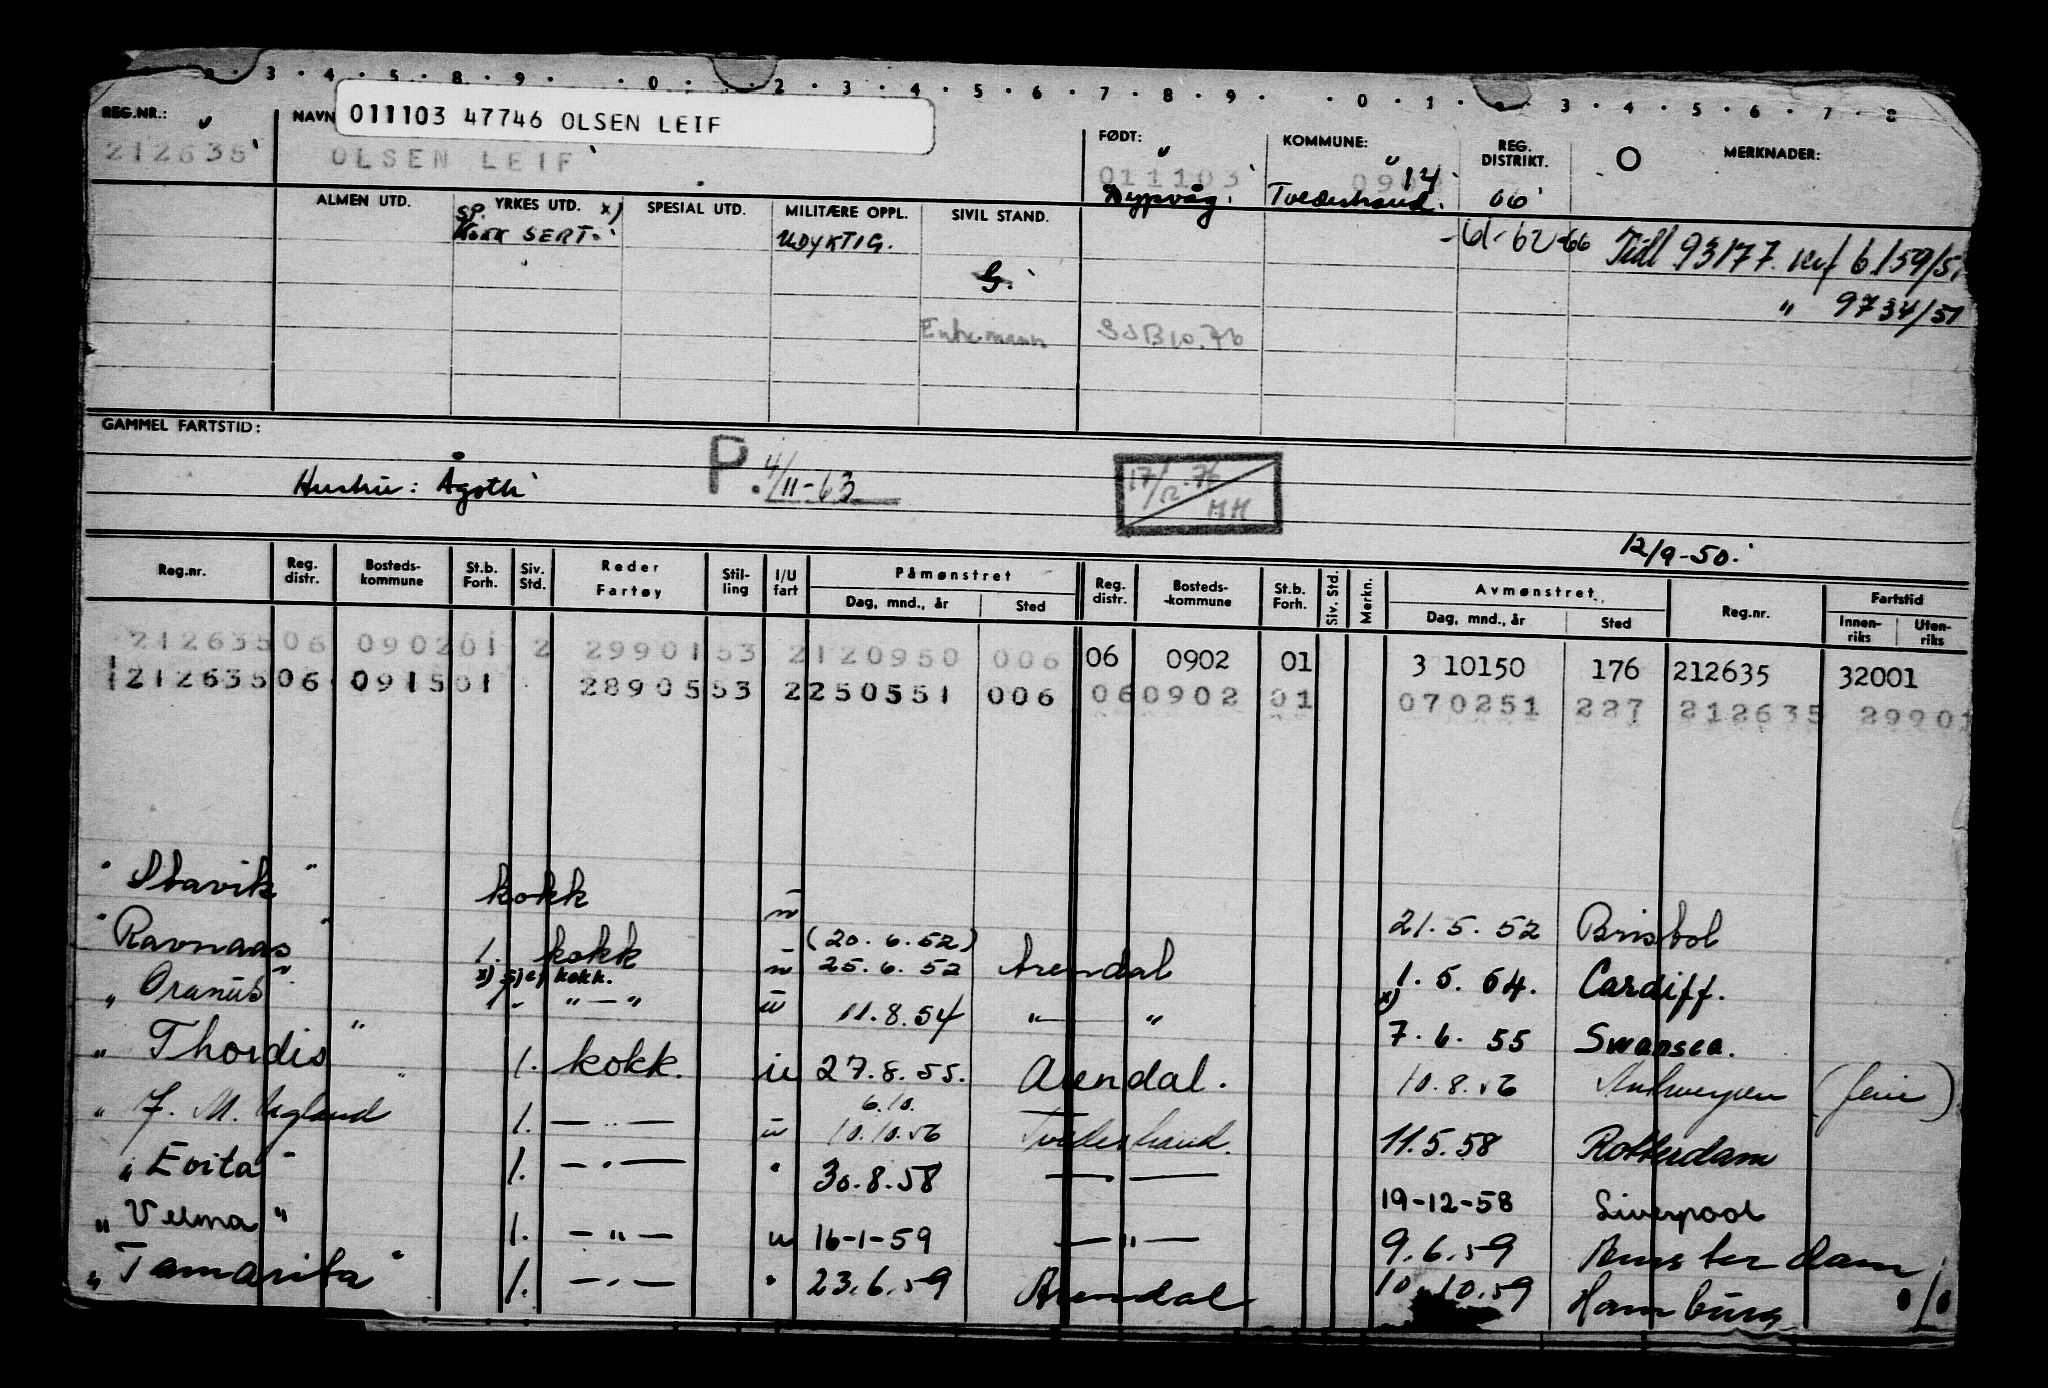 2 · 3 · 4 · 5 · 8 · 9 · · 0 · · 2 · 3 · 4 · 5 · 6 · 7 · 8 · 9 · · 0 · 1 · 2 · 3 · 4 · 5 · 6 · 7 · 8
011103 47746 OLSEN LEIF
REG.NR.: NAVN FØDT: KOMMUNE: REG. DISTRIKT. MERKNADER:
212635 OLSEN LEIF 011103 09 14
Dypvåg. Tvedestrand. 06
ALMEN UTD. YRKES UTD. x) SPESIAL UTD. MILITÆRE OPPL. SIVIL STAND.
SP. KOKK SERT. UDYKTIG. -61-62-66 Tidl 93177 kef 6159/51
G. " 9734/51
Enkemann SJB10.76
GAMMEL FARTSTID:
Hustru: Ågoth P. 4/11-63 17/12.76 HH
12/9-50.
Reg.nr. Reg. distr. Bosteds-kommune St.b. Forh. Siv. Std. Reder Fartøy Stil-ling I/U fart Påmønstret Dag, mnd., år Sted Reg. distr. Bosteds-kommune St.b. Forh. Siv. Std. Merkn. Avmønstret Dag, mnd., år Sted Reg.nr. Fartstid Innen-riks Uten-riks
212635 06 0902 01 2 29901 53 2 120950 006 06 0902 01 3 10150 176 212635 32001
212635 06 0915 01 28905 53 2 250551 006 06 0902 01 070251 227 212635 29901
" Stavik " kokk u 21.5.52 Bristol
" Ravnaas " 1. kokk u (20.6.52) 25.6.52 Arendal 1.5.54. Cardiff.
x) sjef kokk.
" Oranus " 1. " — " u 11.8.54 " — " x) 7.6.55 Swansea.
" Thordis " 1. kokk. u 27.8.55. Arendal. 10.8.56 Antwerpen (ferie)
" J. M. Ugland " 1. — " — u 6.10. 10.10.56 Tvedestrand. 11.5.58 Rotterdam
" Evita " 1. — " — " 30.8.58 — — 19-12-58 Liverpool
" Velma " 1. — " — u 16-1-59 — " — 9.6.59 Amsterdam
" Tamarita " 1. — " — " 23.6.59 Arendal 10.10.59 Hamburg